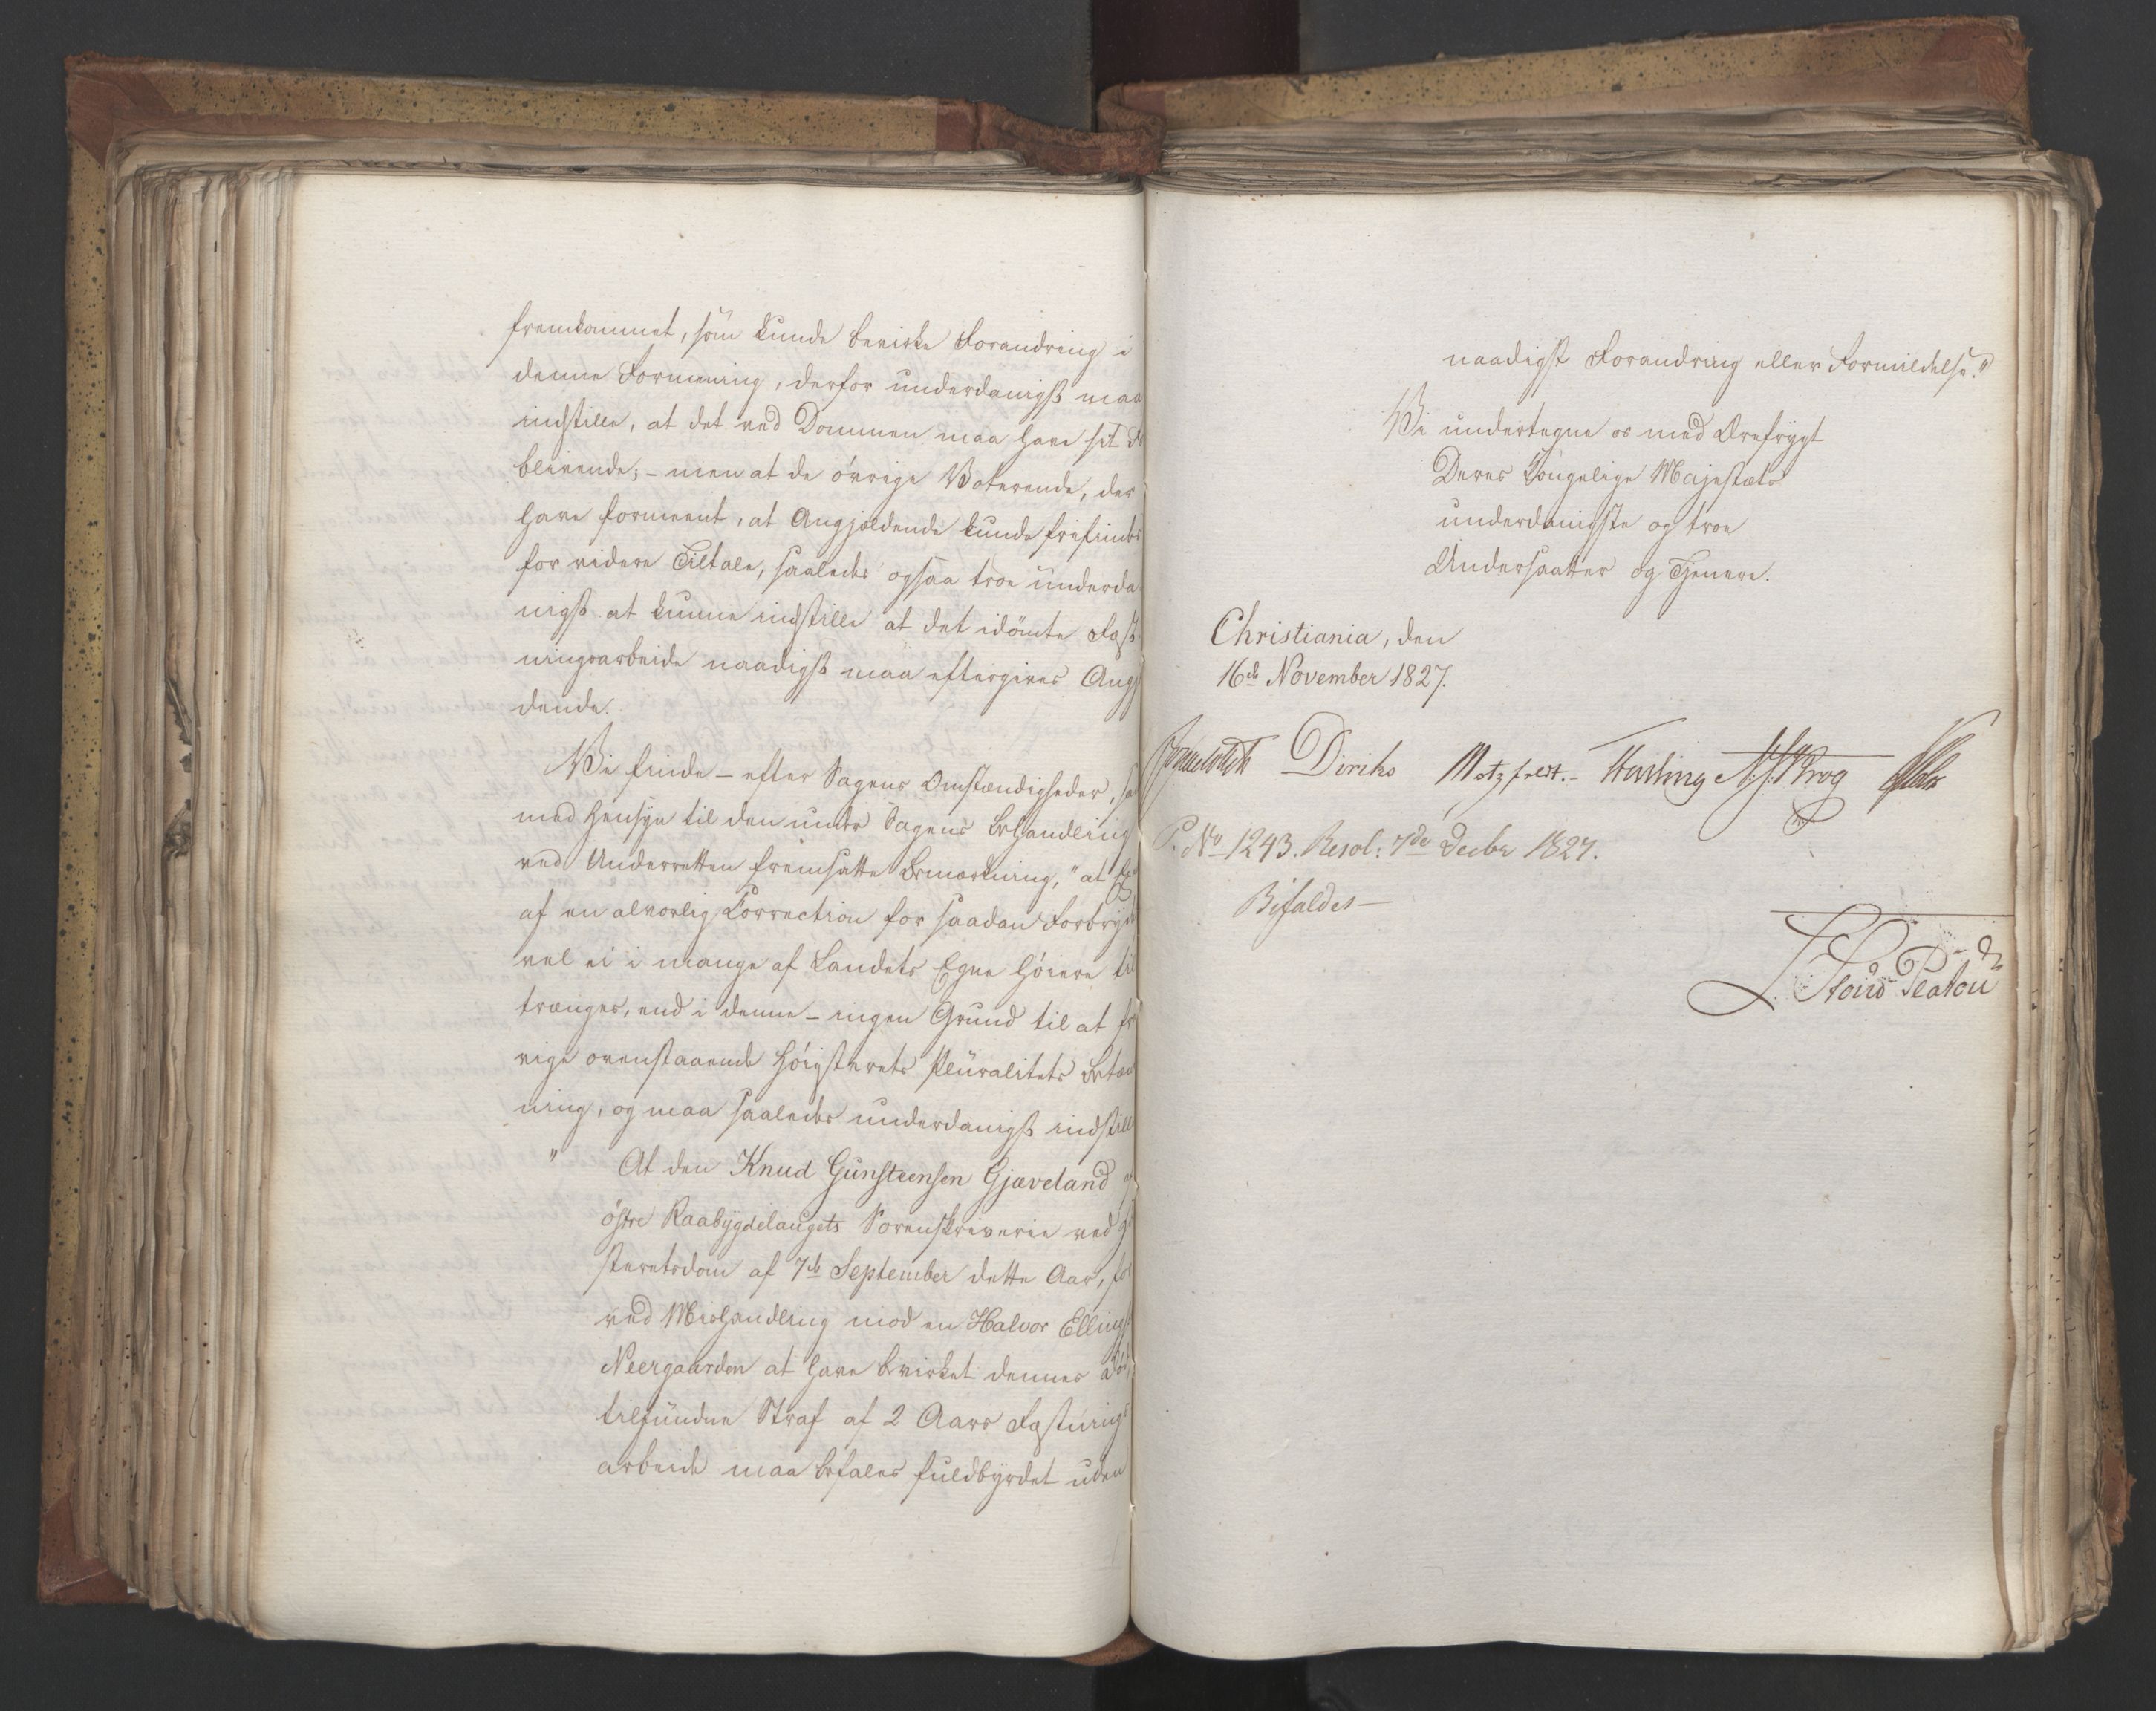 fremkommet, som kunde bevirke Forandring i
denne Formening, derfor underdanigst maa
indstille, at det ved Dommen maa have sit
blivende; – men at de övrige Voterende, der
have formeent, at Angjeldende kunde frifindes
for videre Tiltale, saaledes ogsaa troe underda
nigst at kunne indstille at det idömte Fæst
ningsarbeide naadigst maa eftergives Angj
dende.
Vi finde – efter Sagens Omstændigheder,
med Hensyn til den under Sagens Behandling
ved Underretten fremsatte Bemærkning, "at
af en alvorlig Correction for saadan Forbryd
vel ei i mange af Landets Egne höiere til
trænges, end i denne – ingen Grund til at fra
vige ovenstaaende Höiesterets Pluralitets Betæn
ning, og maa saaledes underdanigst indstille
" At den Knud Gunsteensen Gjæveland
östre Raabygdelaugets Sorenskriverie ved
steretsdom af 7de September dette Aar, for
ved Mishandling mod en Halvor Ellings
Neergaarden at have bevirket dennes Död
tilfundne Straf af 2 Aars Fæstnings
arbeide maa befales fuldbyrdet uden
naadigst Forandring eller Formildelse."
Vi undertegne os med Ærefrygt
Deres Kongelige Majestæts
underdanigste og troe
Undersaatter og Tjenere.
Christiania, den
16de November 1827.
Diriks Motzfeldt. Hertling N. J. Krog
P. No 1243. Resol: 7de Decbr 1827.
Bifaldes –
Stoud Platou